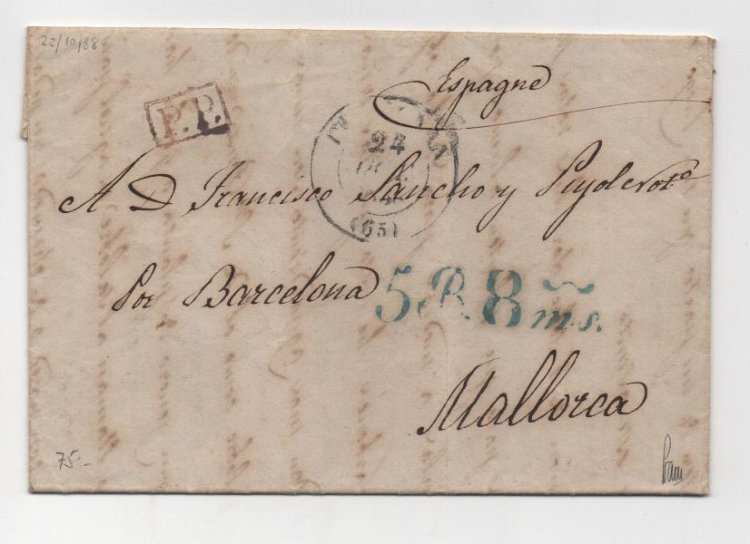 22/10/88
Espagne
P.P.
24
(65)
A D. Francisco Sancho y
Por Barcelona
5 R. 8 ms.
Mallorca
75.-